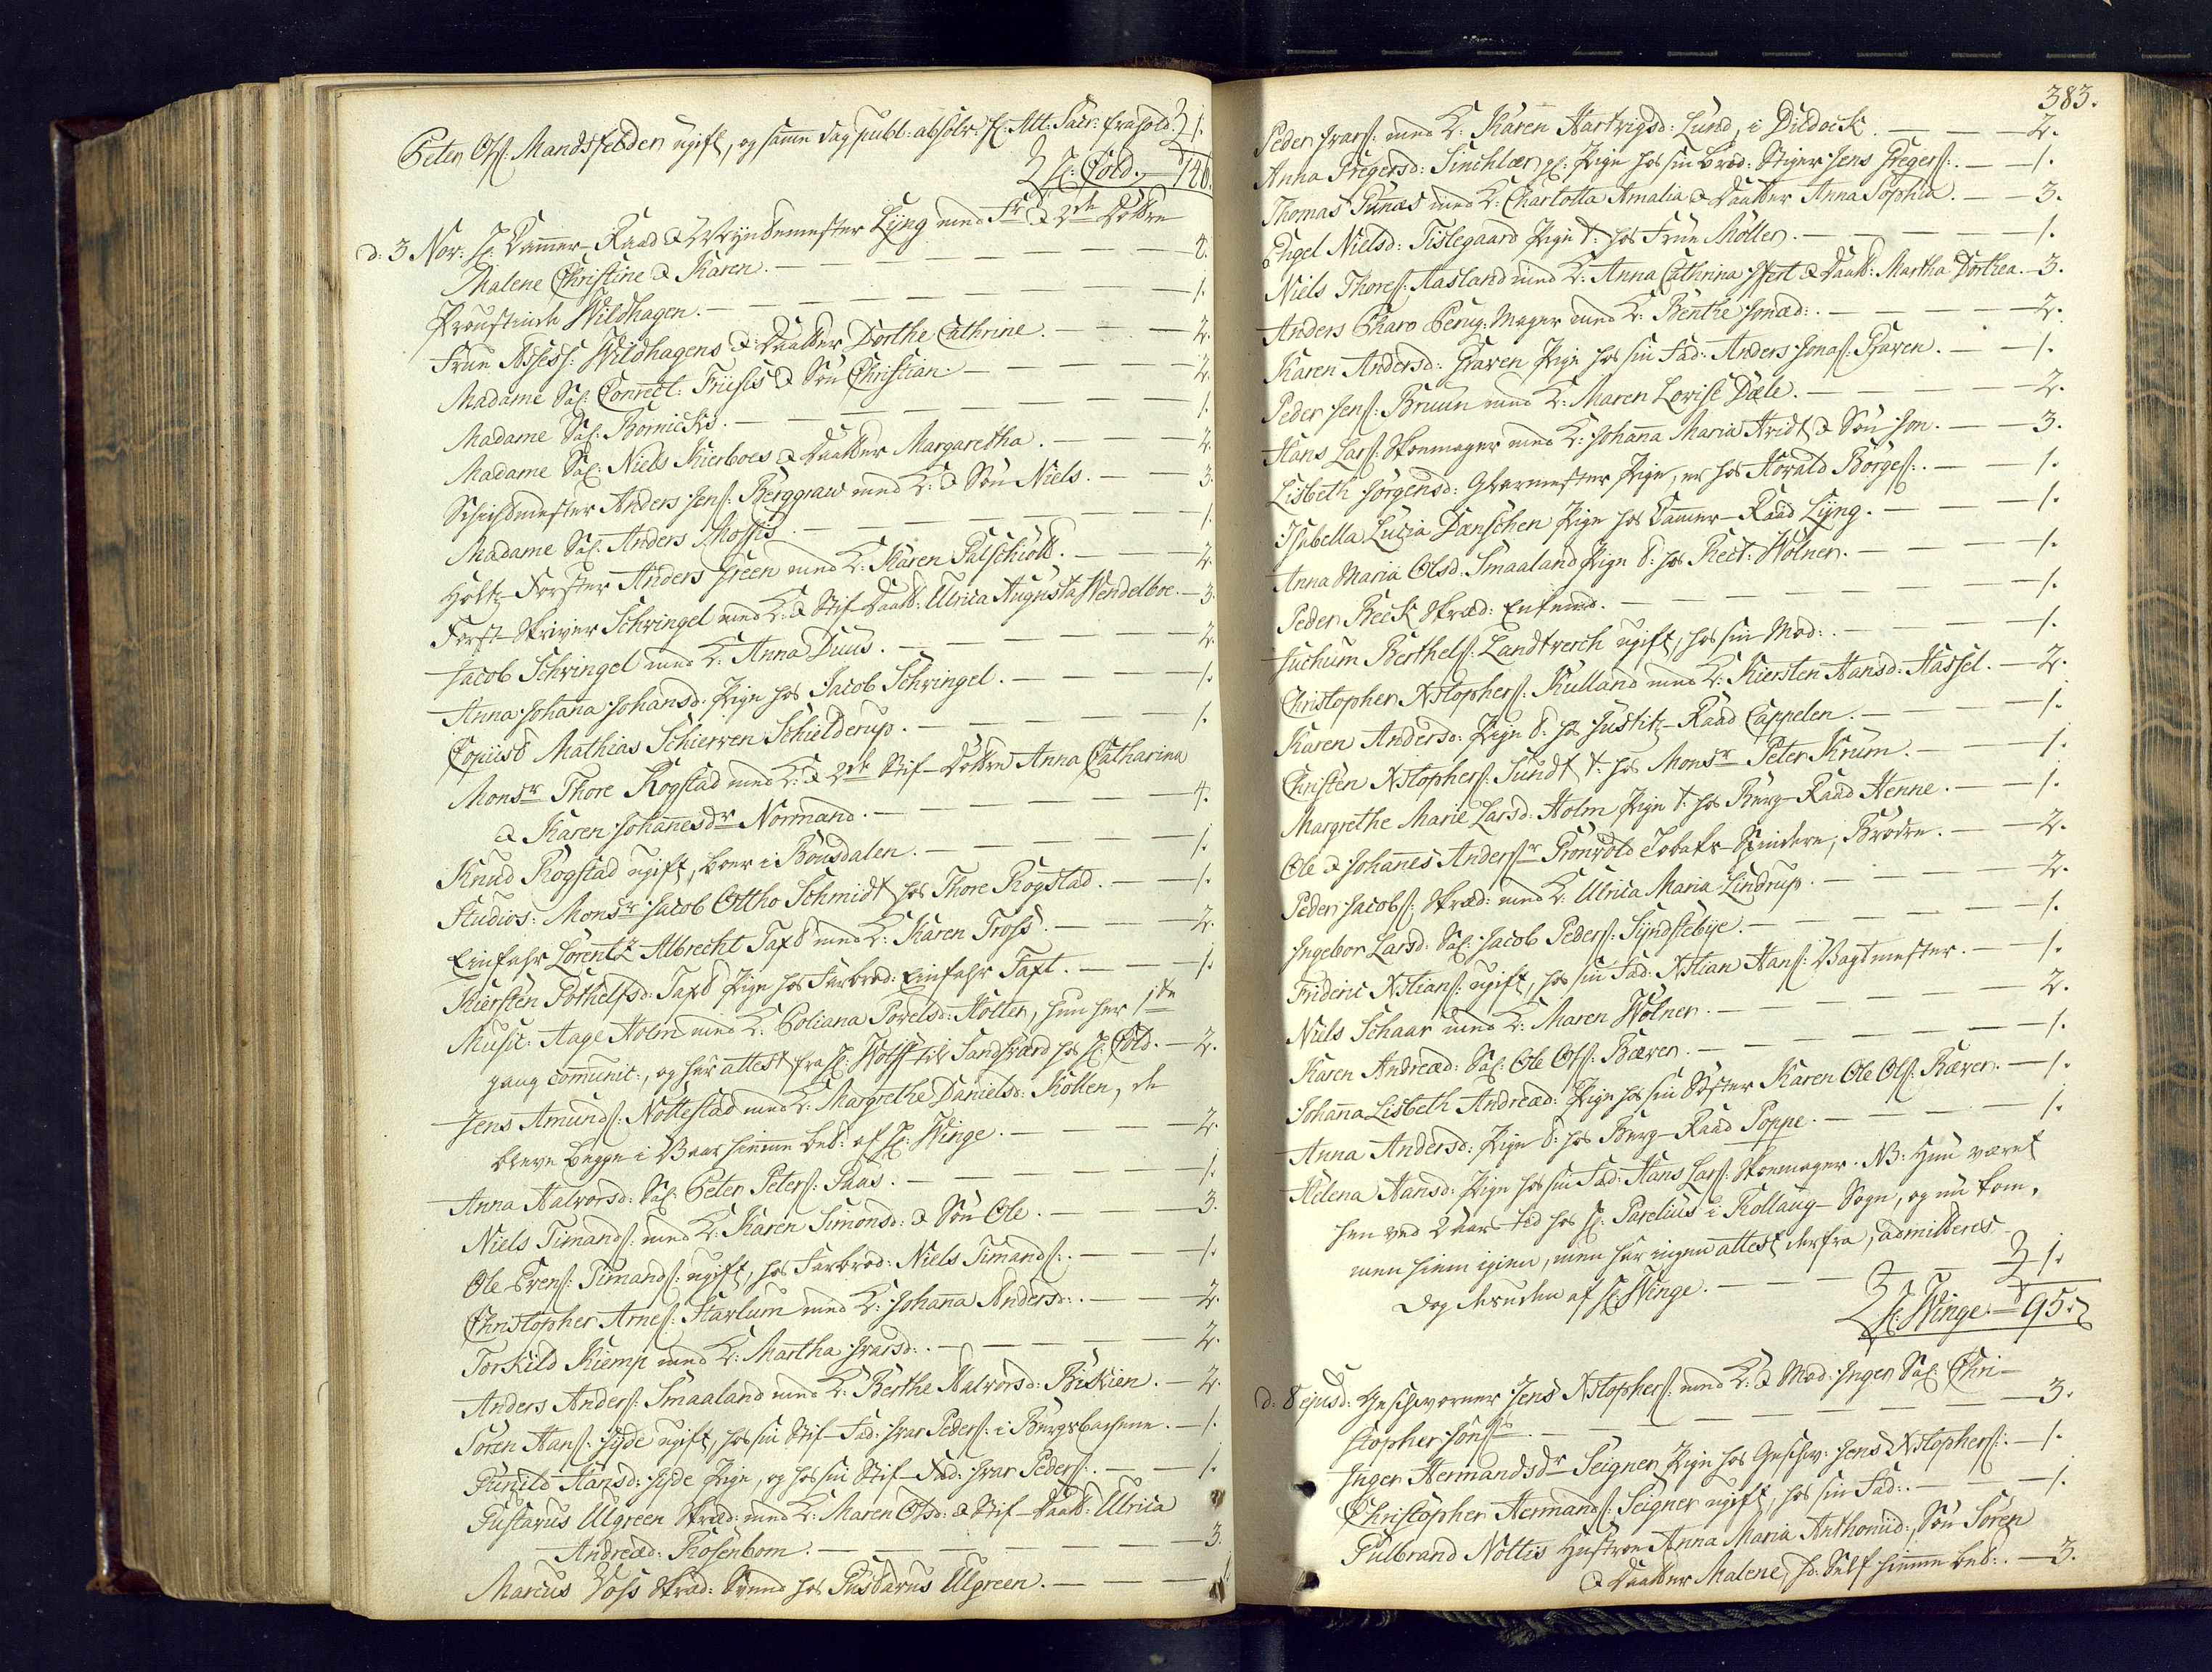 Peter Ols: Mandsfelder ugift, og samme dag publ: absolv: H: Alt: Sacr: fra hold. 1.
H: Cold. — 146.
d. 3 Nov. H: Cammer-Raad & Myndtmester Lÿng med Fr: & 2de Døttre
Malene Christine & Karen. — 4.
Proustinde Wildhagen. — 1.
Frue Assess: Wildhagens & Daatter Dorthe Cathrine. — 2.
Madame Sal: Conrect: Friises & Søn Christian. — 2.
Madame Sal: Bornichs. — 1.
Madame Sal: Niels Kierboes & Daatter Margaretha. — 2.
Schichtmester Anders Jens: Berggraw med K: & Søn Niels. — 3.
Madame Sal: Anders Mosses. — 1.
Holtz-Forster Anders Green med K: Karen Palschiøtt. — 2.
Forst-Skriver Schvingel med K: & Stif-Daatt: Ulrica Augusta Wendelboe. — 3.
Jacob Schvingel med K: Anna Duus. — 2.
Anna Johana Johansd: Pige hos Jacob Schvingel. — 1.
Copiist Mathias Schierven Schielderup. — 1.
Monsr Thore Rogstad med K: & 2de Stif-Døttre Anna Catharina
& Karen Johannesdr Normand. — 4.
Knud Rogstad ugift, boer i Bousdalen. — 1.
Studios: Monsr Jacob Ottho Schmidt hos Thore Rogstad. — 1.
Einfahr Lorentz Albrecht Taxt med K: Karen Tross. — 2.
Kiersten Pothelfsd: Taxt Pige hos Farbrod: Einfahr Taxt. — 1.
Music: Aage Holm med K: Poliana Povelsd: Holter, hun her 1te
gang communic:, og har attest fra H: Wolff til Sandsværd hos H: Cold. — 2.
Jens Amunds: Nottestad med K: Margrethe Danielsd: Kollen, de
bleve begge i Vaar hiemme bet: af H: Winge. — 2.
Anna Halvorsd: Sal: Peter Peters: Faas. — 1.
Niels Timands: med K: Karen Simonsd: & Søn Ole. — 3.
Ole Evens: Timands: ugift, hos Farbrod: Niels Timands: — 1.
Christopher Arnes: Harlum med K: Johanna Andersd: — 2.
Torkild Kiemp med K: Martha Ivarsd: — 2.
Anders Anders: Smaaland med K: Berthe Halvorsd: Biskien. — 2.
Søren Hans: Hyde ugift, hos sin Stif-Fad: Ivar Peders: i Bergsbachene. — 1.
Gunild Hansd: Hyde Pige, og hos sin Stif-Fad: Ivar Peders: — 1.
Gustavus Ulgreen Skræd: med K: Maren Olsd: & Stif-Daatt: Ulrica
Andreæd: Rosenbom. — 3.
Marcus Foss Skræd: Svend hos Gustavus Ulgreen. — 1.
383.
Peder Ivars: med K: Karen Hartvigsd: Lund, i Dildock. — 2.
Anna Gregersd: Sinchler gl: Pige hos sin Brod: Stiger Jens Gregers: — 1.
Thomas Gunæs med K: Charlotta Amalia & Daatter Anna Sophia. — 3.
Engel Nielsd: Tislegaard Pige t: hos Frue Møller. — 1.
Niels Thores: Aasland med K: Anna Cathrina Hfert & Daatt: Martha Dorthea. — 3.
Anders Pharo Peruq: Mager med K: Benthe Jonæd: — 2.
Karen Andersd: Graven Pige hos sin Fad: Anders Jonas: Graven. — 1.
Peder Jens: Bruun med K: Maren Lovise Dæle. — 2.
Hans Lars: Skoemager med K: Johanna Maria Aridt & Søn Jon. — 3.
Lisbeth Jørgensd: Glarmester Pige, er hos Horald Børges: — 1.
Isabella Lucia Danschen Pige hos Cammer-Raad Lyng. — 1.
Anna Maria Olsd: Smaaland Pige t: hos Rect: Wolner. — 1.
Peder Beck Skræd: Enkemd. — 1.
Juchum Berthels: Landtverch ugift, hos sin Mod: — 1.
Christopher Xstophers: Kulland med K: Kiersten Hansd: Hassel. — 2.
Karen Andersd: Pige t: hos Justitz-Raad Cappelen. — 1.
Christen Xstophers: Sundt t: hos Monsr Peter Krum. — 1.
Margrethe Marie Larsd: Holm Pige t: hos Berg-Raad Henne. — 1.
Ole & Johanes Andersr Gronvold Tobaks-Spindere, Brødre. — 2.
Peder Jacobs: Skræd: med K: Ulrica Maria Lindrup. — 2.
Ingebor Larsd: Sal: Jacob Peders: Syndstebye. — 1.
Frideric Xstians: ugift, hos sin Fad: Xstian Hans: Vagtmester. — 1.
Niels Schaar med K: Maren Wolner. — 2.
Karen Andreæd: Sal: Ole Ols: Bæver. — 1.
Johanna Lisbeth Andreæd: Pige hos sin Søster Karen Ole Ols: Bæver. — 1.
Anna Andersd: Pige t: hos Berg-Raad Poppe. — 1.
Helena Hansd: Pige hos sin Fad: Hans Lars: Skoemager. NB: Hun været
hen ved 2 Aars-tid hos H: Parelius i Rollaug-Sogn, og nu kom,
men hiem igien, men har ingen attest derfra, admitteres
dog desuden af H: Winge. — 1.
H: Winge. — 95.
d. 8 ejusd: Geschworner Jens Xstophers: med K: & Mod: Inger Sal: Chri-
stopher Jons: — 3.
Inger Hermandsdr Seigner Pige hos Geschw: Jens Xstophers: — 1.
Christopher Hermands: Seigner ugift, hos sin Fad: — 1.
Gulbrand Nottis Hustroe Anna Maria Anthoniid:, Søn Søren
& Daatter Malene, H: Self hiemme bet: — 3.